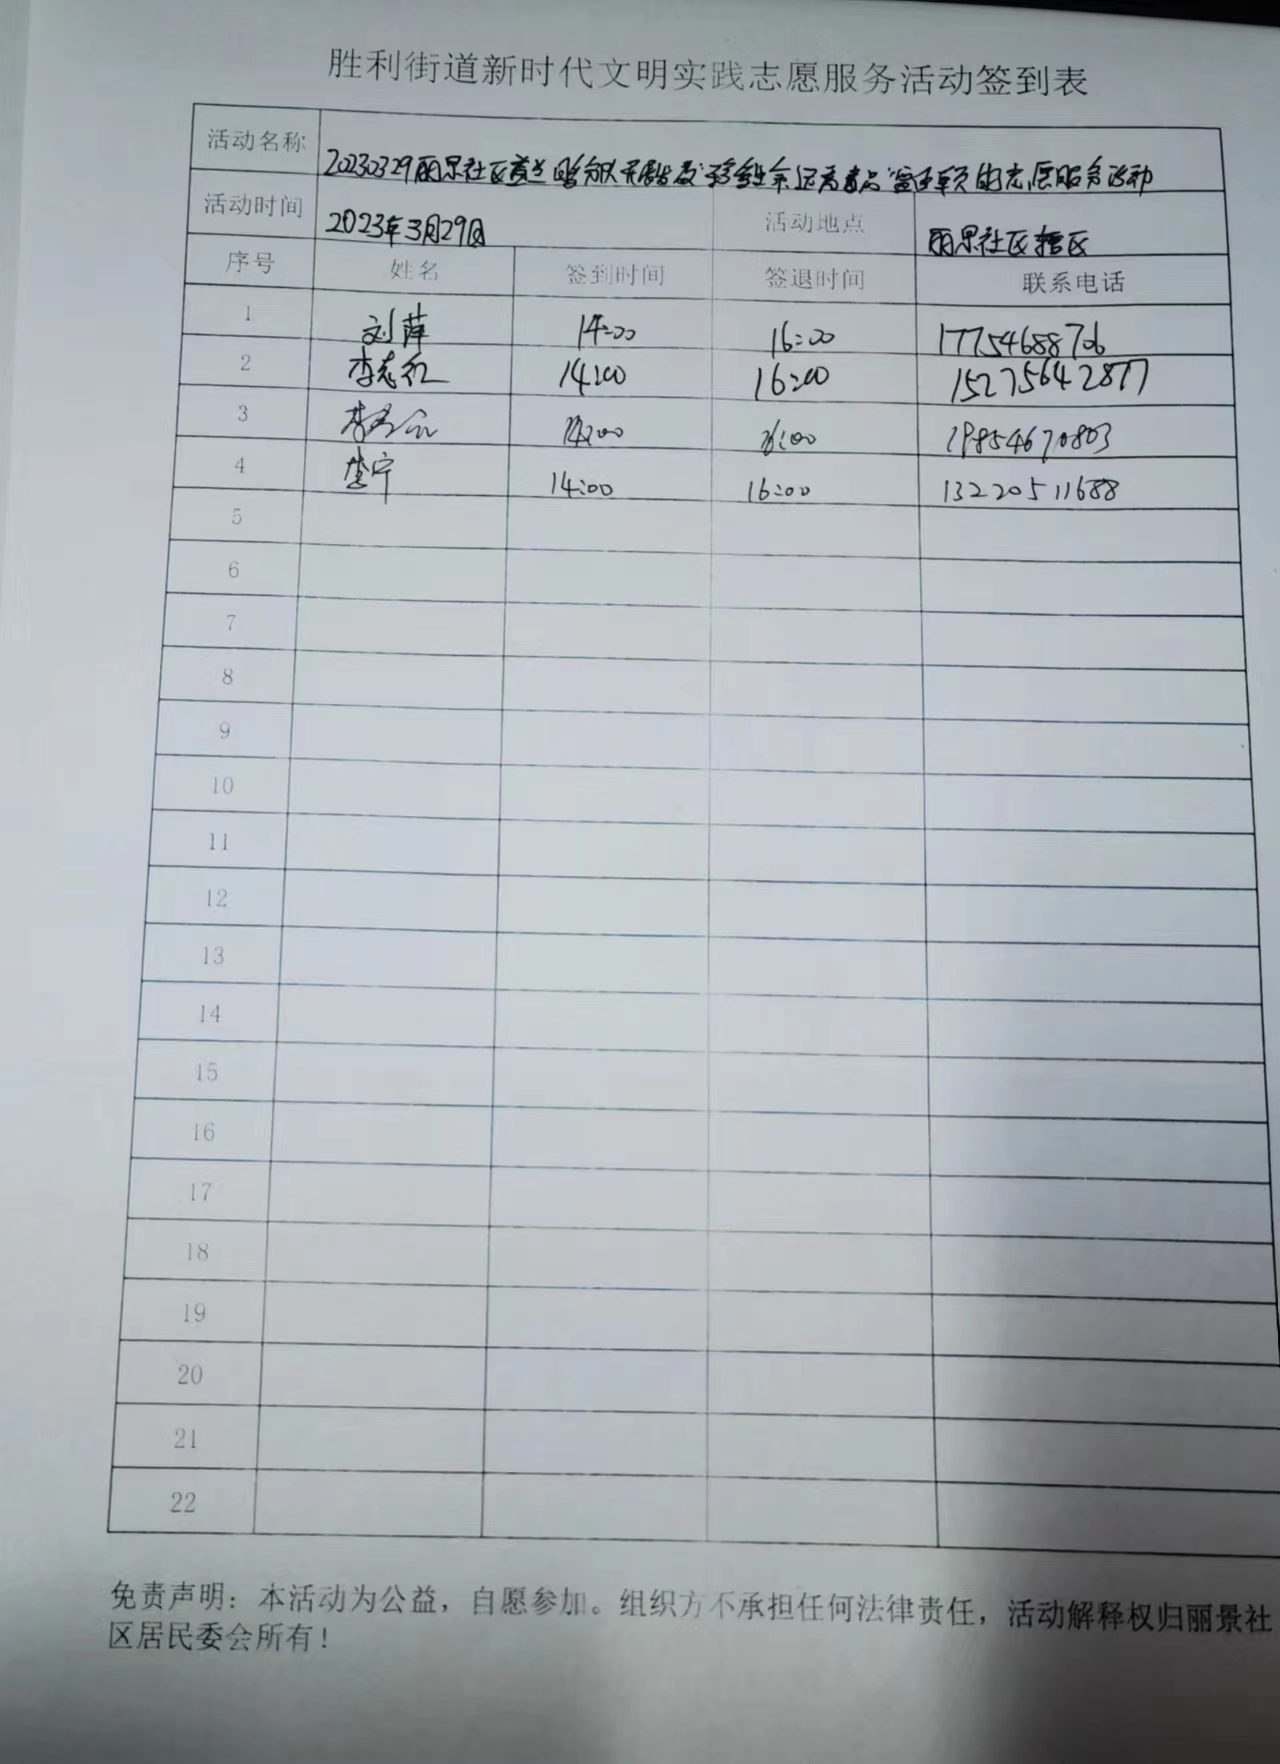 胜利街道新时代文明实践志愿服务活动签到表
活动名称 20230329丽景社区 志愿服务活动
活动时间 2023年3月29日 活动地点 丽景社区辖区
序号 姓名 签到时间 签退时间 联系电话
1 刘萍 14:00 16:00 17754688706
2 李志红 14:00 16:00 15275642877
3 14:00 16:00 19854670803
4 李宁 14:00 16:00 13220511688
5
6
7
8
9
10
11
12
13
14
15
16
17
18
19
20
21
22
免责声明：本活动为公益，自愿参加。组织方不承担任何法律责任，活动解释权归丽景社
区居民委会所有！